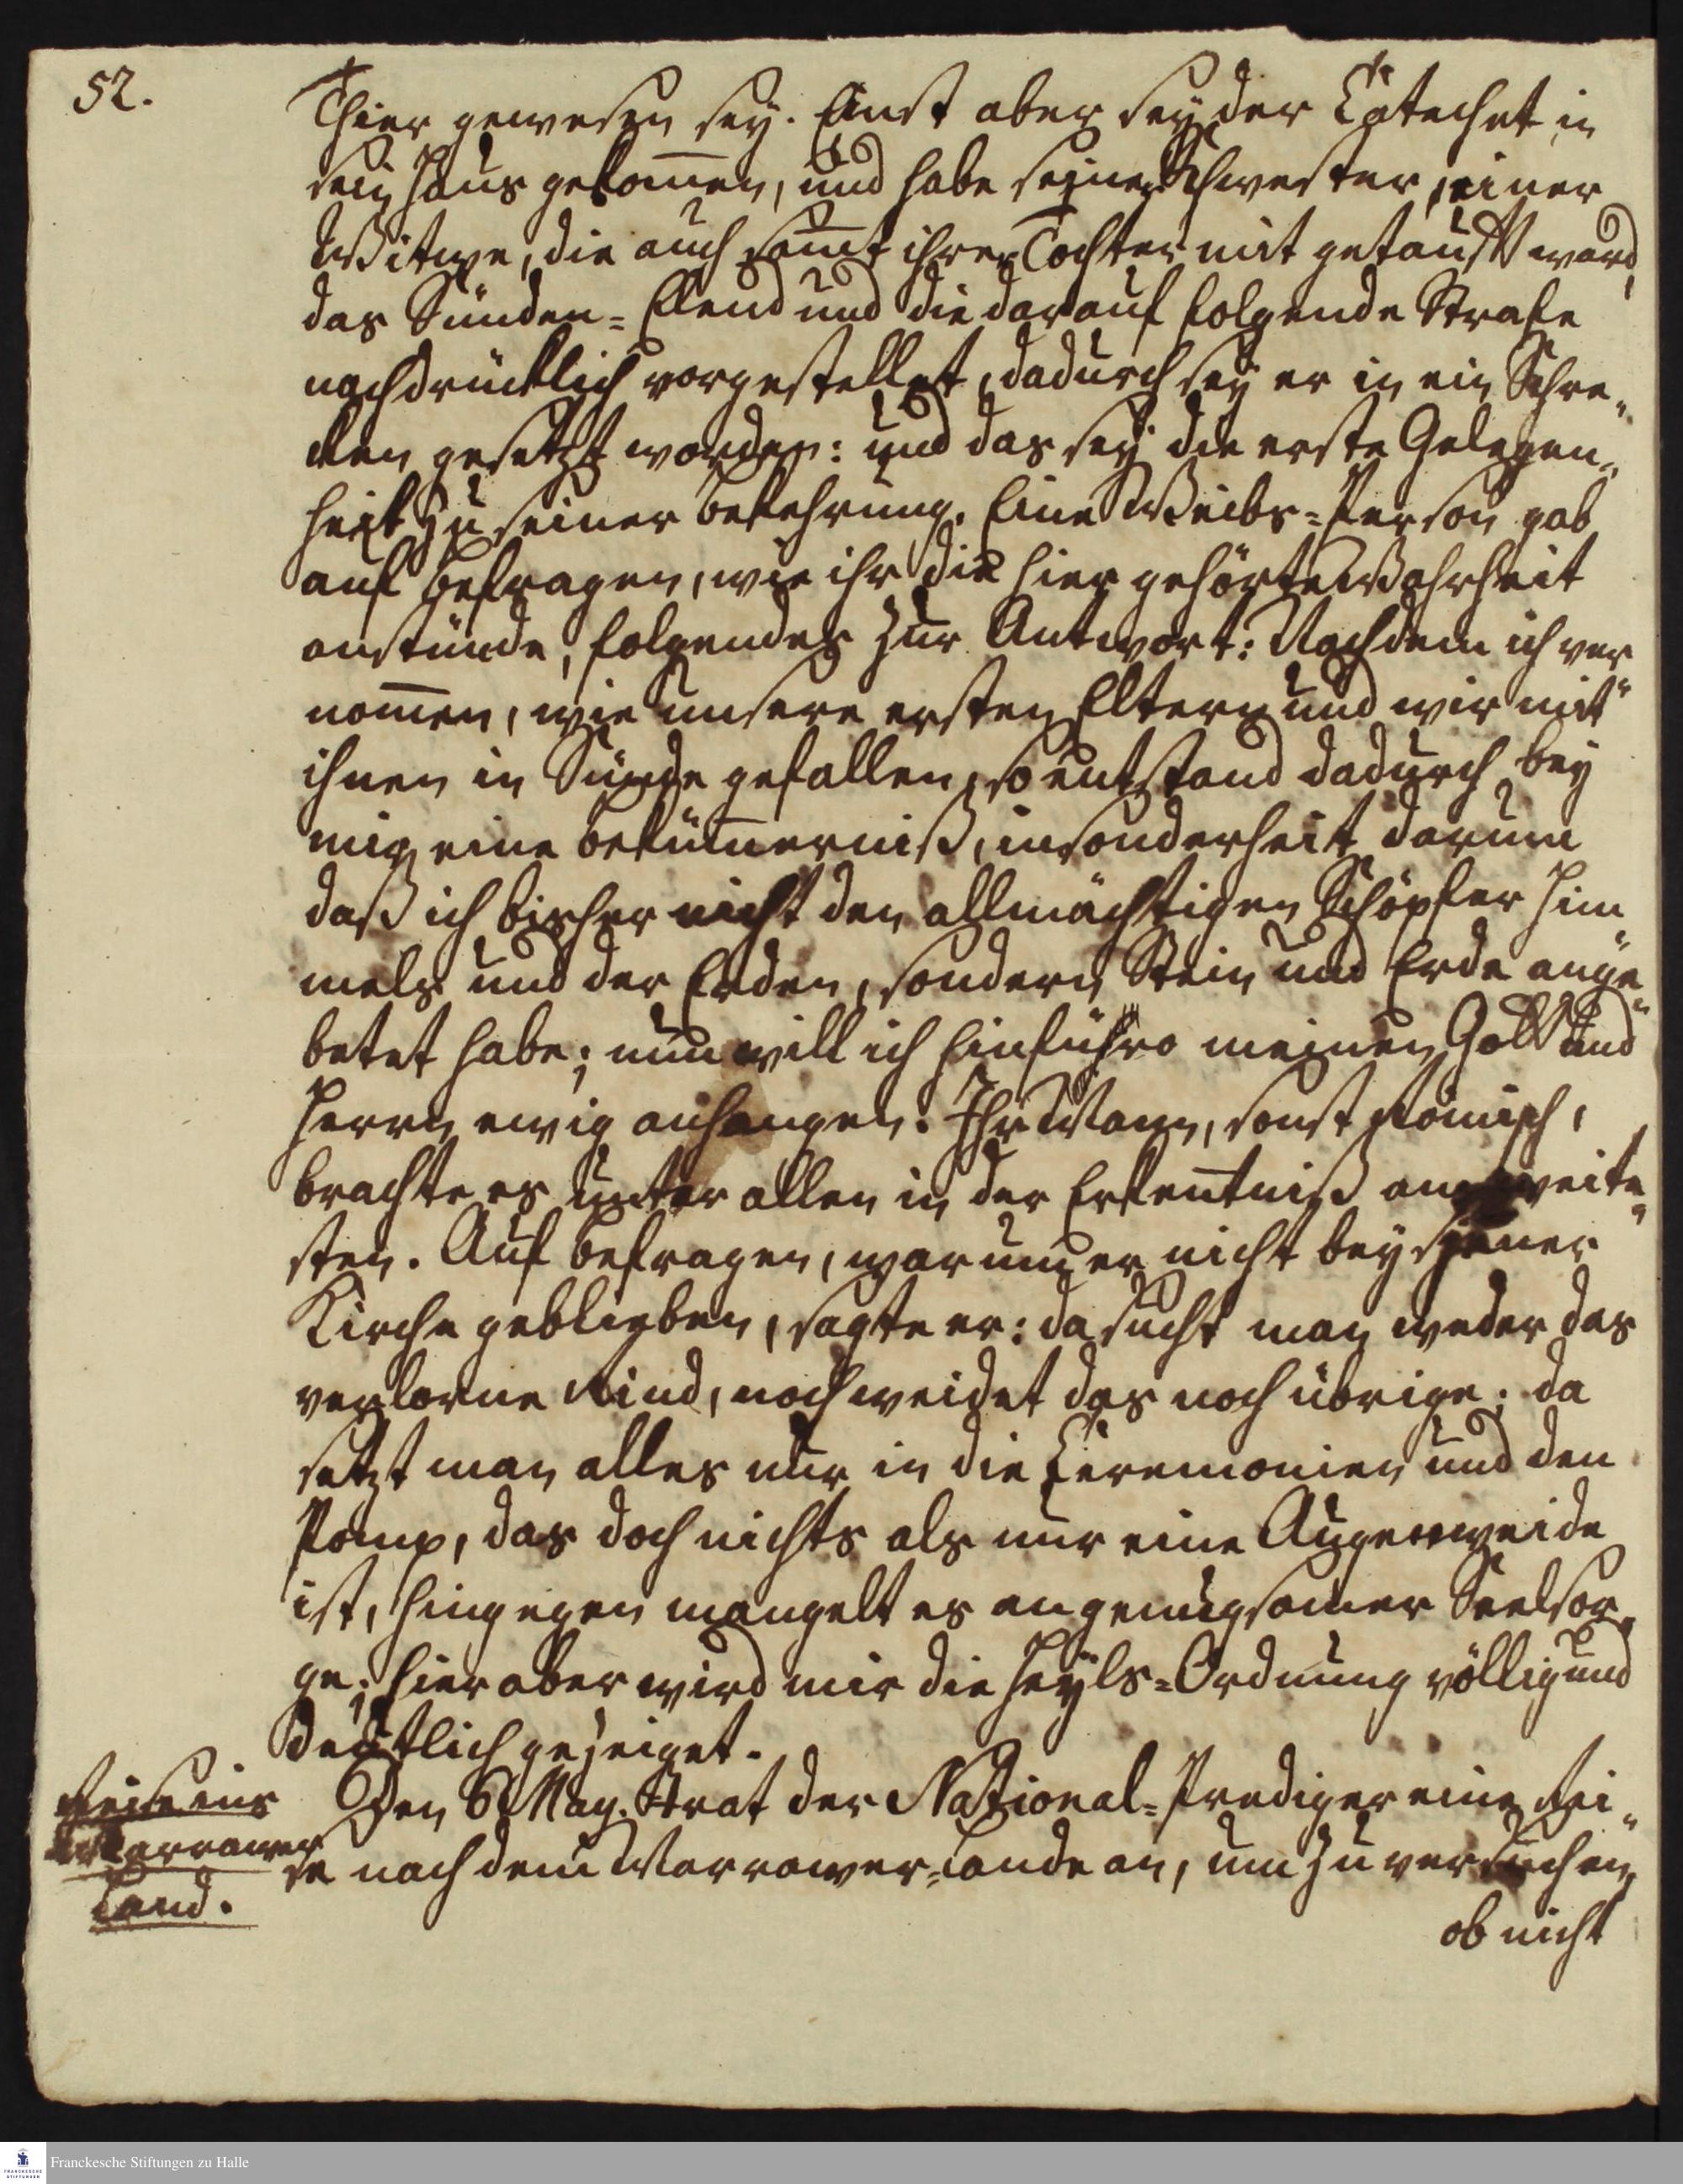 52.
Thier gewesen sey. Einst aber sey der Catechet in
sein Haus gekom̅en, und habe seiner Schwester, einer
Witwe, die auch sam̅t ihrer Tochter mit getaufft ward,
das Sünden=Elend und die darauf folgende Strafe
nachdrücklich vorgestellet, dadurch sey er in ein Schre„
cken gesetzt worden: und das sey die erste Gelegen„
heit zu seiner Bekehrung. Eine Weibs=Person gab
auf Befragen, wie ihr die hier gehörte Wahrheit
anstünde, folgendes zur Antwort: Nachdem ich ver
nom̅en, wie unsere ersten Eltern und wir mit“
ihnen in Sünde gefallen, so entstand dadurch bey
mir eine Beküm̅erniß, insonderheit darum
daß ich bisher nicht den allmächtigen Schöpfer Him„
mels und der Erden, sondern Stein und Erde ange„
betet habe; nun will ich hinführo meinen Gott und
Herrn ewig anhangen. Ihr Mann, sonst Römisch,
brachte es unter allen in der Erkentniß am weite„
sten. Auf Befragen, warum er nicht bey seiner
Kirche geblieben, sagte er: da sucht man weder das
verlorne Rind, noch weidet das noch übrige; da
setzt man alles nur in die Ceremonien und den
Pomp, das doch nichts als nur eine Augenweide
ist, hingegen mangelt es an genugsamer Seelsor„
ge; hier aber wird mir die Heyls=Ordnung völlig und
deutlich gezeiget.
Reise ins
Marrawer
Land.
Den 6 May. trat der National=Prediger eine Rei„
se nach dem Marrawer=Lande an, um zu versuchen,
ob nicht
Franckesche Stiftungen zu Halle
FRANCKESCHE
STIFTUNGEN